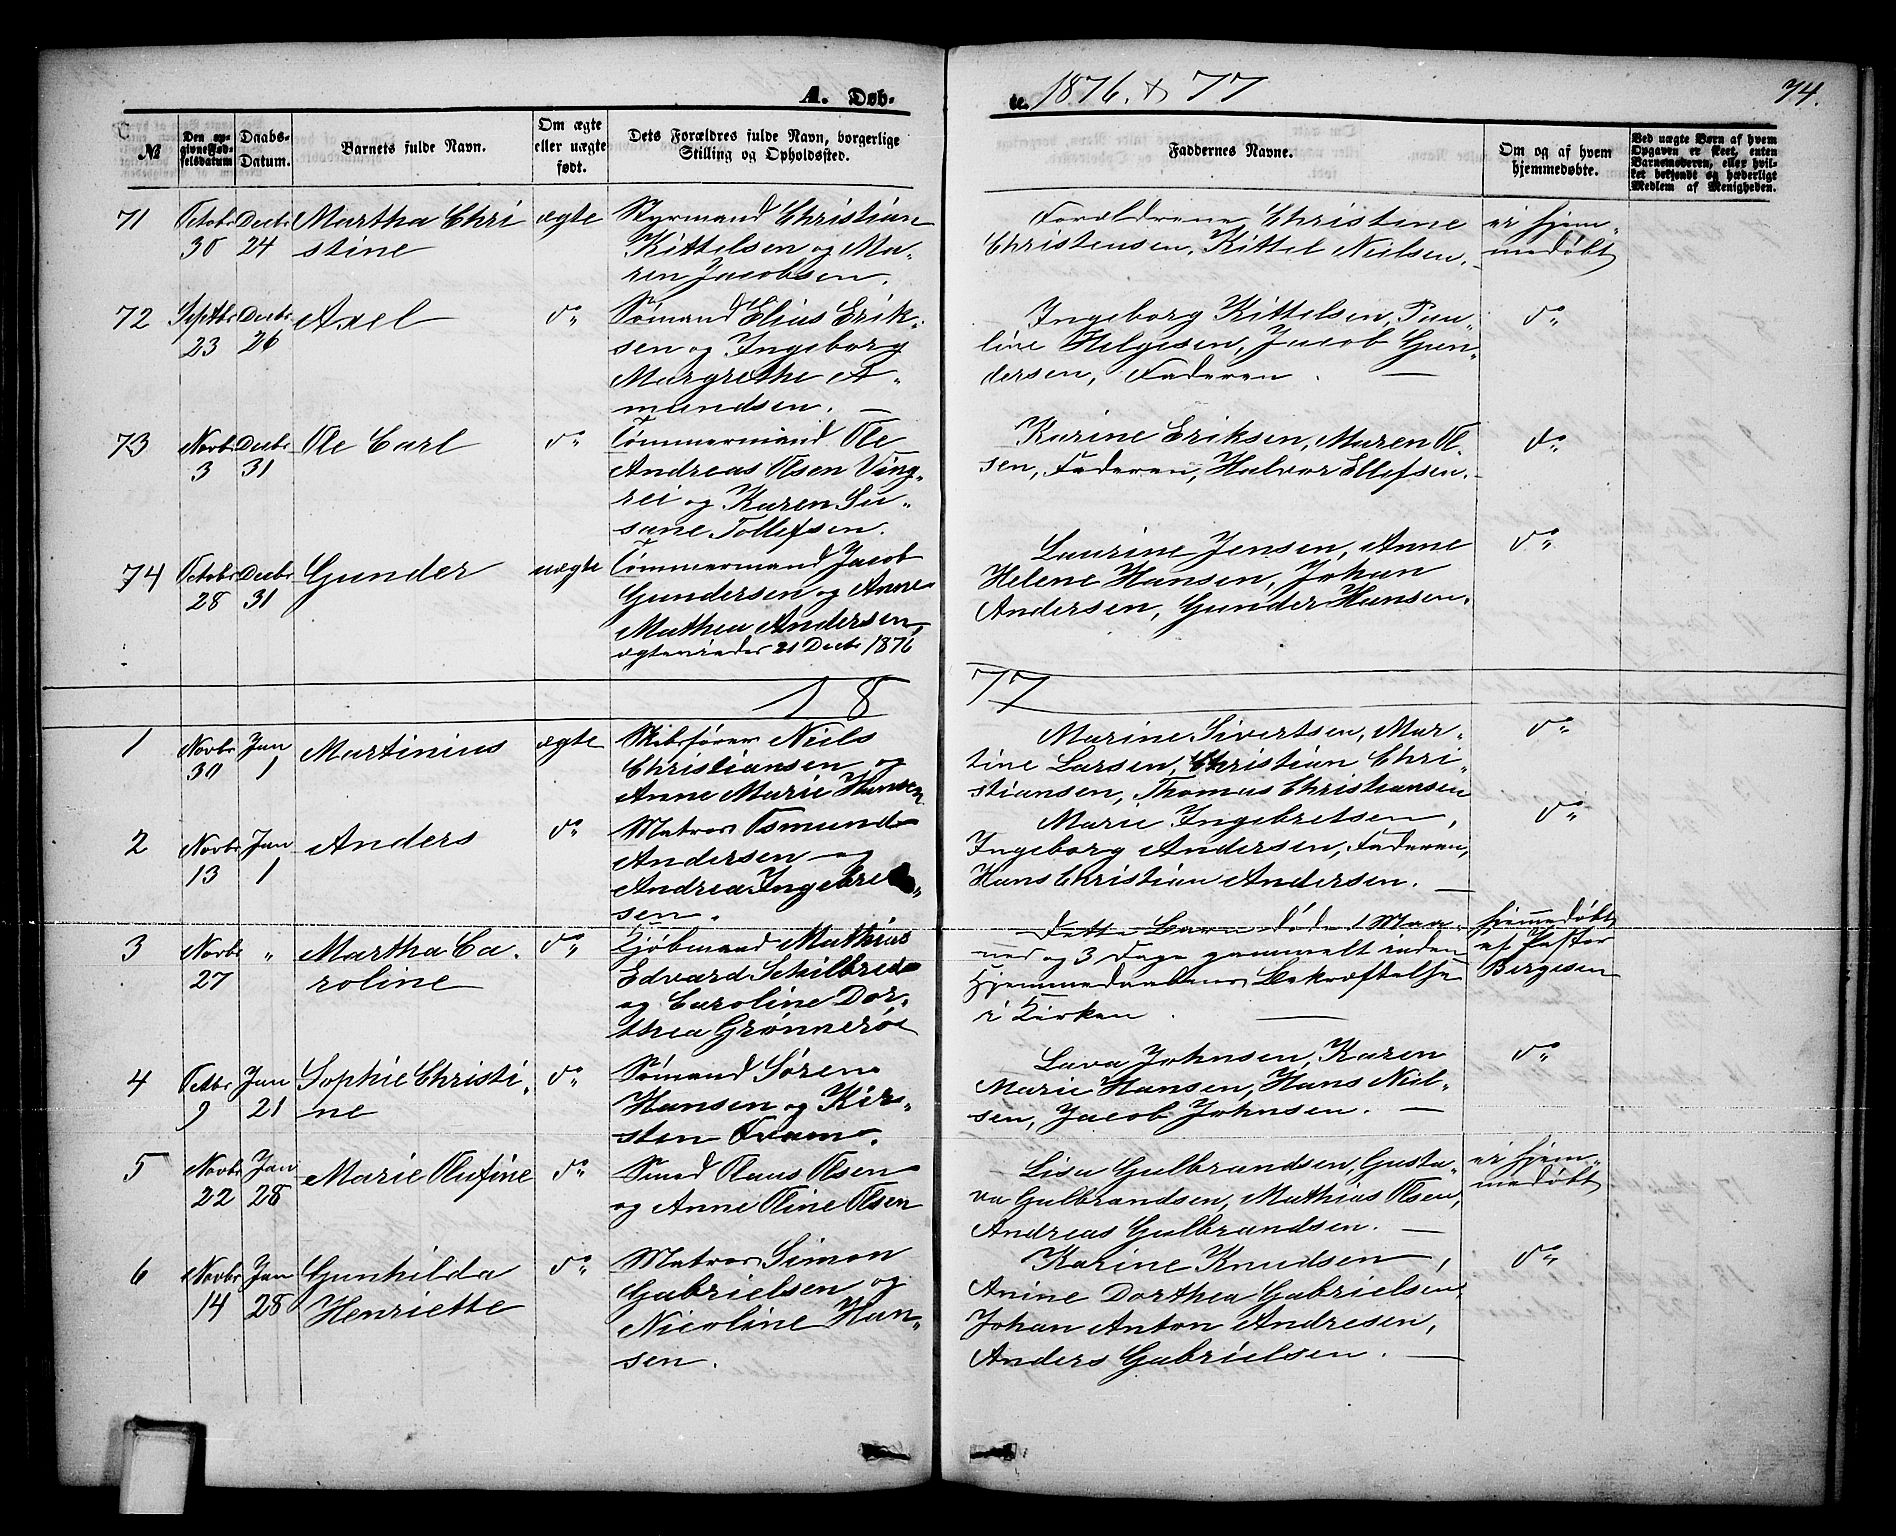 A. Døb-
te. 1876. & 77
74.
№
Den opgivne Fødselsdatum
Daabs-Datum.
Barnets fulde Navn.
Om ægte eller uægte født.
Dets Forældres fulde Navn, borgerlige Stilling og Opholdssted.
Faddernes Navne.
Om og af hvem hjemmedøbte.
Ved uægte Børn af hvem Opgaven er skeet, enten Barnemoderen, eller hvilket bekjendt og hæderligt Medlem af Menigheden.
71 Octobr 30 Decbr 24 Martha Chri
stine
ægte
Styrmand Christian
Kittelsen og Ma-
ren Jacobsen.
Forældrene, Christine
Christensen, Kittel Nielsen.
ei hjem-
medøbt
72 Septbr 23 Decbr 26 Axel
do
Sømand Elias Erik-
sen og Ingeborg
Margrethe A-
mundsen.
Ingeborg Kittelsen, Pau-
line Helgesen, Jacob Gun-
dersen, Faderen.
do
73 Novbr 3 Decbr 31 Ole Carl
do
Tømmermand Ole
Andreas Olsen Ving-
rei og Karen Su-
sane Tollefsen.
Karine Eriksen, Maren Ol-
sen, Faderen, Halvor Ellefsen.
do
74 Octobr 28 Decbr 31 Gunder
uægte
Tømmermand Jacob
Gundersen og Anne
Mathea Andersen,
ægteviede 21 Decbr 1876
Laurine Jensen, Anne
Helene Hansen, Johan
Andersen, Gunder Hansen.
do
18
77
1 Novbr 30 Jan 1 Martinius
ægte
Skibsfører Niels
Christiansen og
Anne Marie Hansen
Marine Sivertsen, Mar-
tine Larsen, Christian Chri-
stiansen, Thomas Christiansen
do
2 Novbr 13 Jan 1 Anders
do
Matros Osmund
Andersen og
Andrea Ingebret-
sen.
Marie Ingebretsen,
Ingeborg Andersen, Faderen,
Hans Christian Andersen.
do
3 Novbr 27 " Martha Ca-
roline
do
Kjøbmand Mathias
Edvard Schilbred
og Caroline Dor-
thea Grønnerøe
Dette Barn døde 1 Maa-
ned og 3 Dage gammelt inden
Hjemmedaabens Bekræftelse
i Kirken.
hjemmedøbt
af Pastor
Bergesen
4 Octbr 9 Jan 21 Sophie Christi-
ne
do
Sømand Søren
Hansen og Kir-
sten Fram.
Lava Johnsen, Karen
Marie Hansen, Hans Niel-
sen, Jacob Johnsen.
do
5 Novbr 22 Jan 28 Marie Olufine
do
Smed Claus Olsen
og Anne Oline Olsen
Lisa Gulbrandsen, Gusta-
va Gulbrandsen, Mathias Olsen,
Andreas Gulbrandsen.
ei hjem-
medøbt
6 Novbr 14 Jan 28 Gunhilda
Henriette
do
Matros Simon
Gabrielsen og
Nicoline Han-
sen.
Karine Knudsen,
Anine Dorthea Gabrielsen,
Johan Anton Andresen,
Anders Gabrielsen.
do